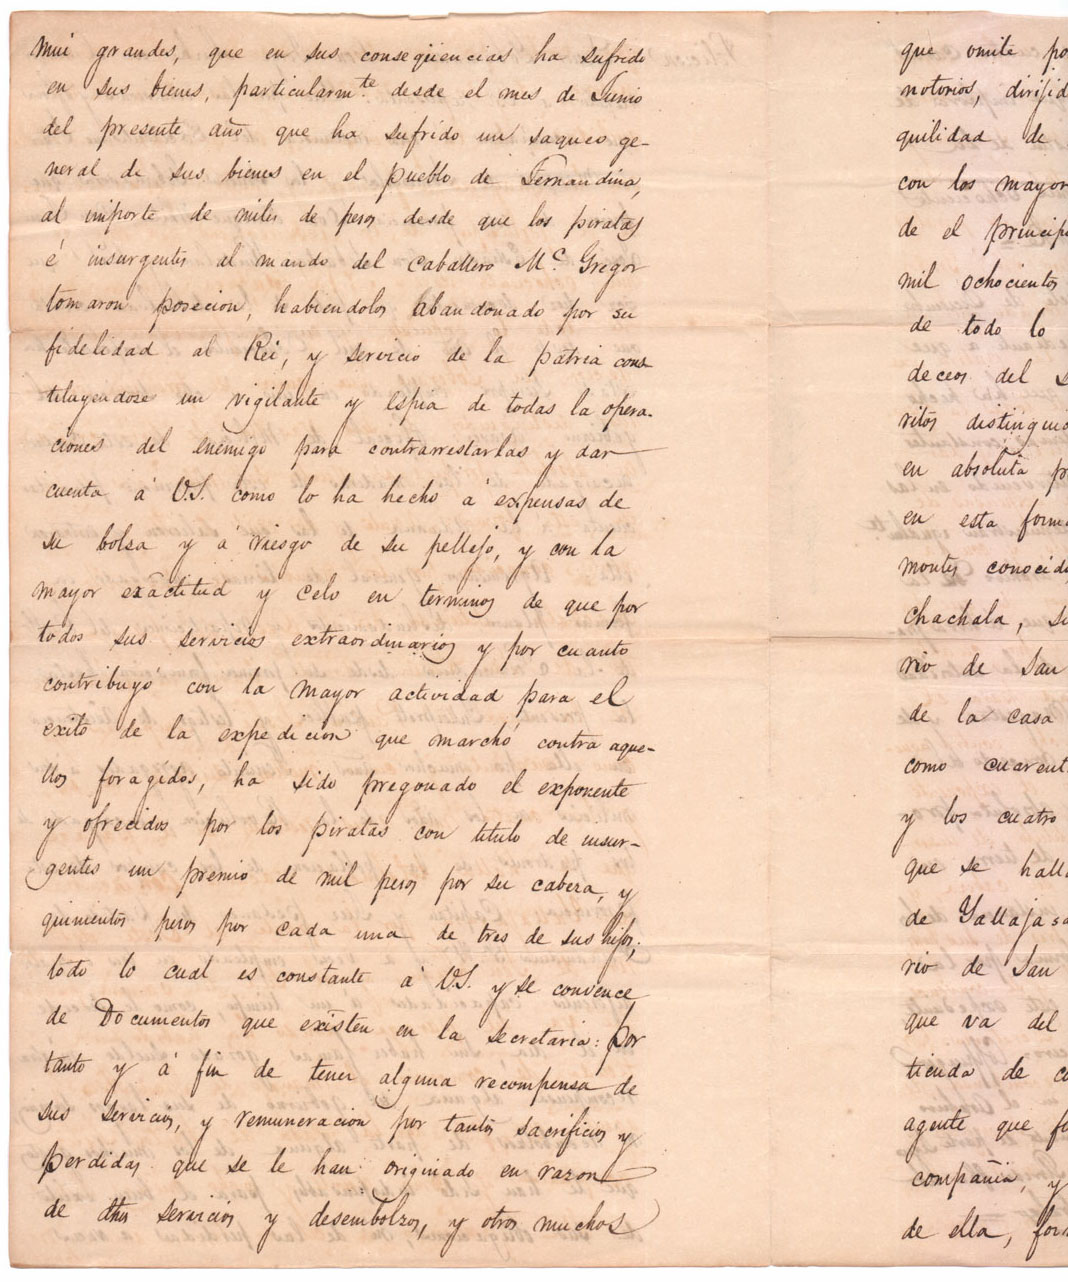 mui grandes, que en sus conseqüencias ha sufrido
en sus bienes, particularmte desde el mes de Junio
del presente año que ha sufrido un saqueo ge-
neral de sus bienes en el pueblo de Fernandina,
al importe de miles de pesos desde que los piratas
é insurgentes al mando del caballero Mc. Gregor
tomaron posecion, habiendolos abandonado por su
fidelidad al Rei, y servicio de la patria cons-
tituyendose un vigilante y espia de todas la opera-
ciones del enemigo para contrarrestarlas y dar
cuenta á V.S. como lo ha hecho á expensas de
su bolsa y á riesgo de su pellejo, y con la
mayor exâctitud y celo en terminos de que por
todos sus servicios extraordinarios y por cuanto
contribuyó con la mayor actividad para el
exito de la expedicion que marchó contra aque-
llos foragidos, ha sido pregonado el exponente
y ofrecidos por los piratas con titulo de insur-
gentes un premio de mil pesos por su cabeza, y
quinientos pesos por cada una de tres de sus hijos;
todo lo cual es constante á V.S. y se convence
de Documentos que existen en la secretaria: por
tanto y á fin de tener alguna recompensa de
sus servicios, y remuneracion por tantos sacrificios y
perdidas que se le han originado en razon
de dhos servicios y desembolzos, y otros muchos
que omite po
notorios, dirijid
quilidad de
con los mayor
de el princip
mil ochocientos
de todo lo
deceos del
ritos distingui
en absoluta p
en esta forma
montes conocid
Chachala, s
rio de San
de la casa
como cuarent
y los cuatro
que se halla
de Yallajasa
rio de San
que va del
tienda de c
agente que f
compañia, y
de ella, for